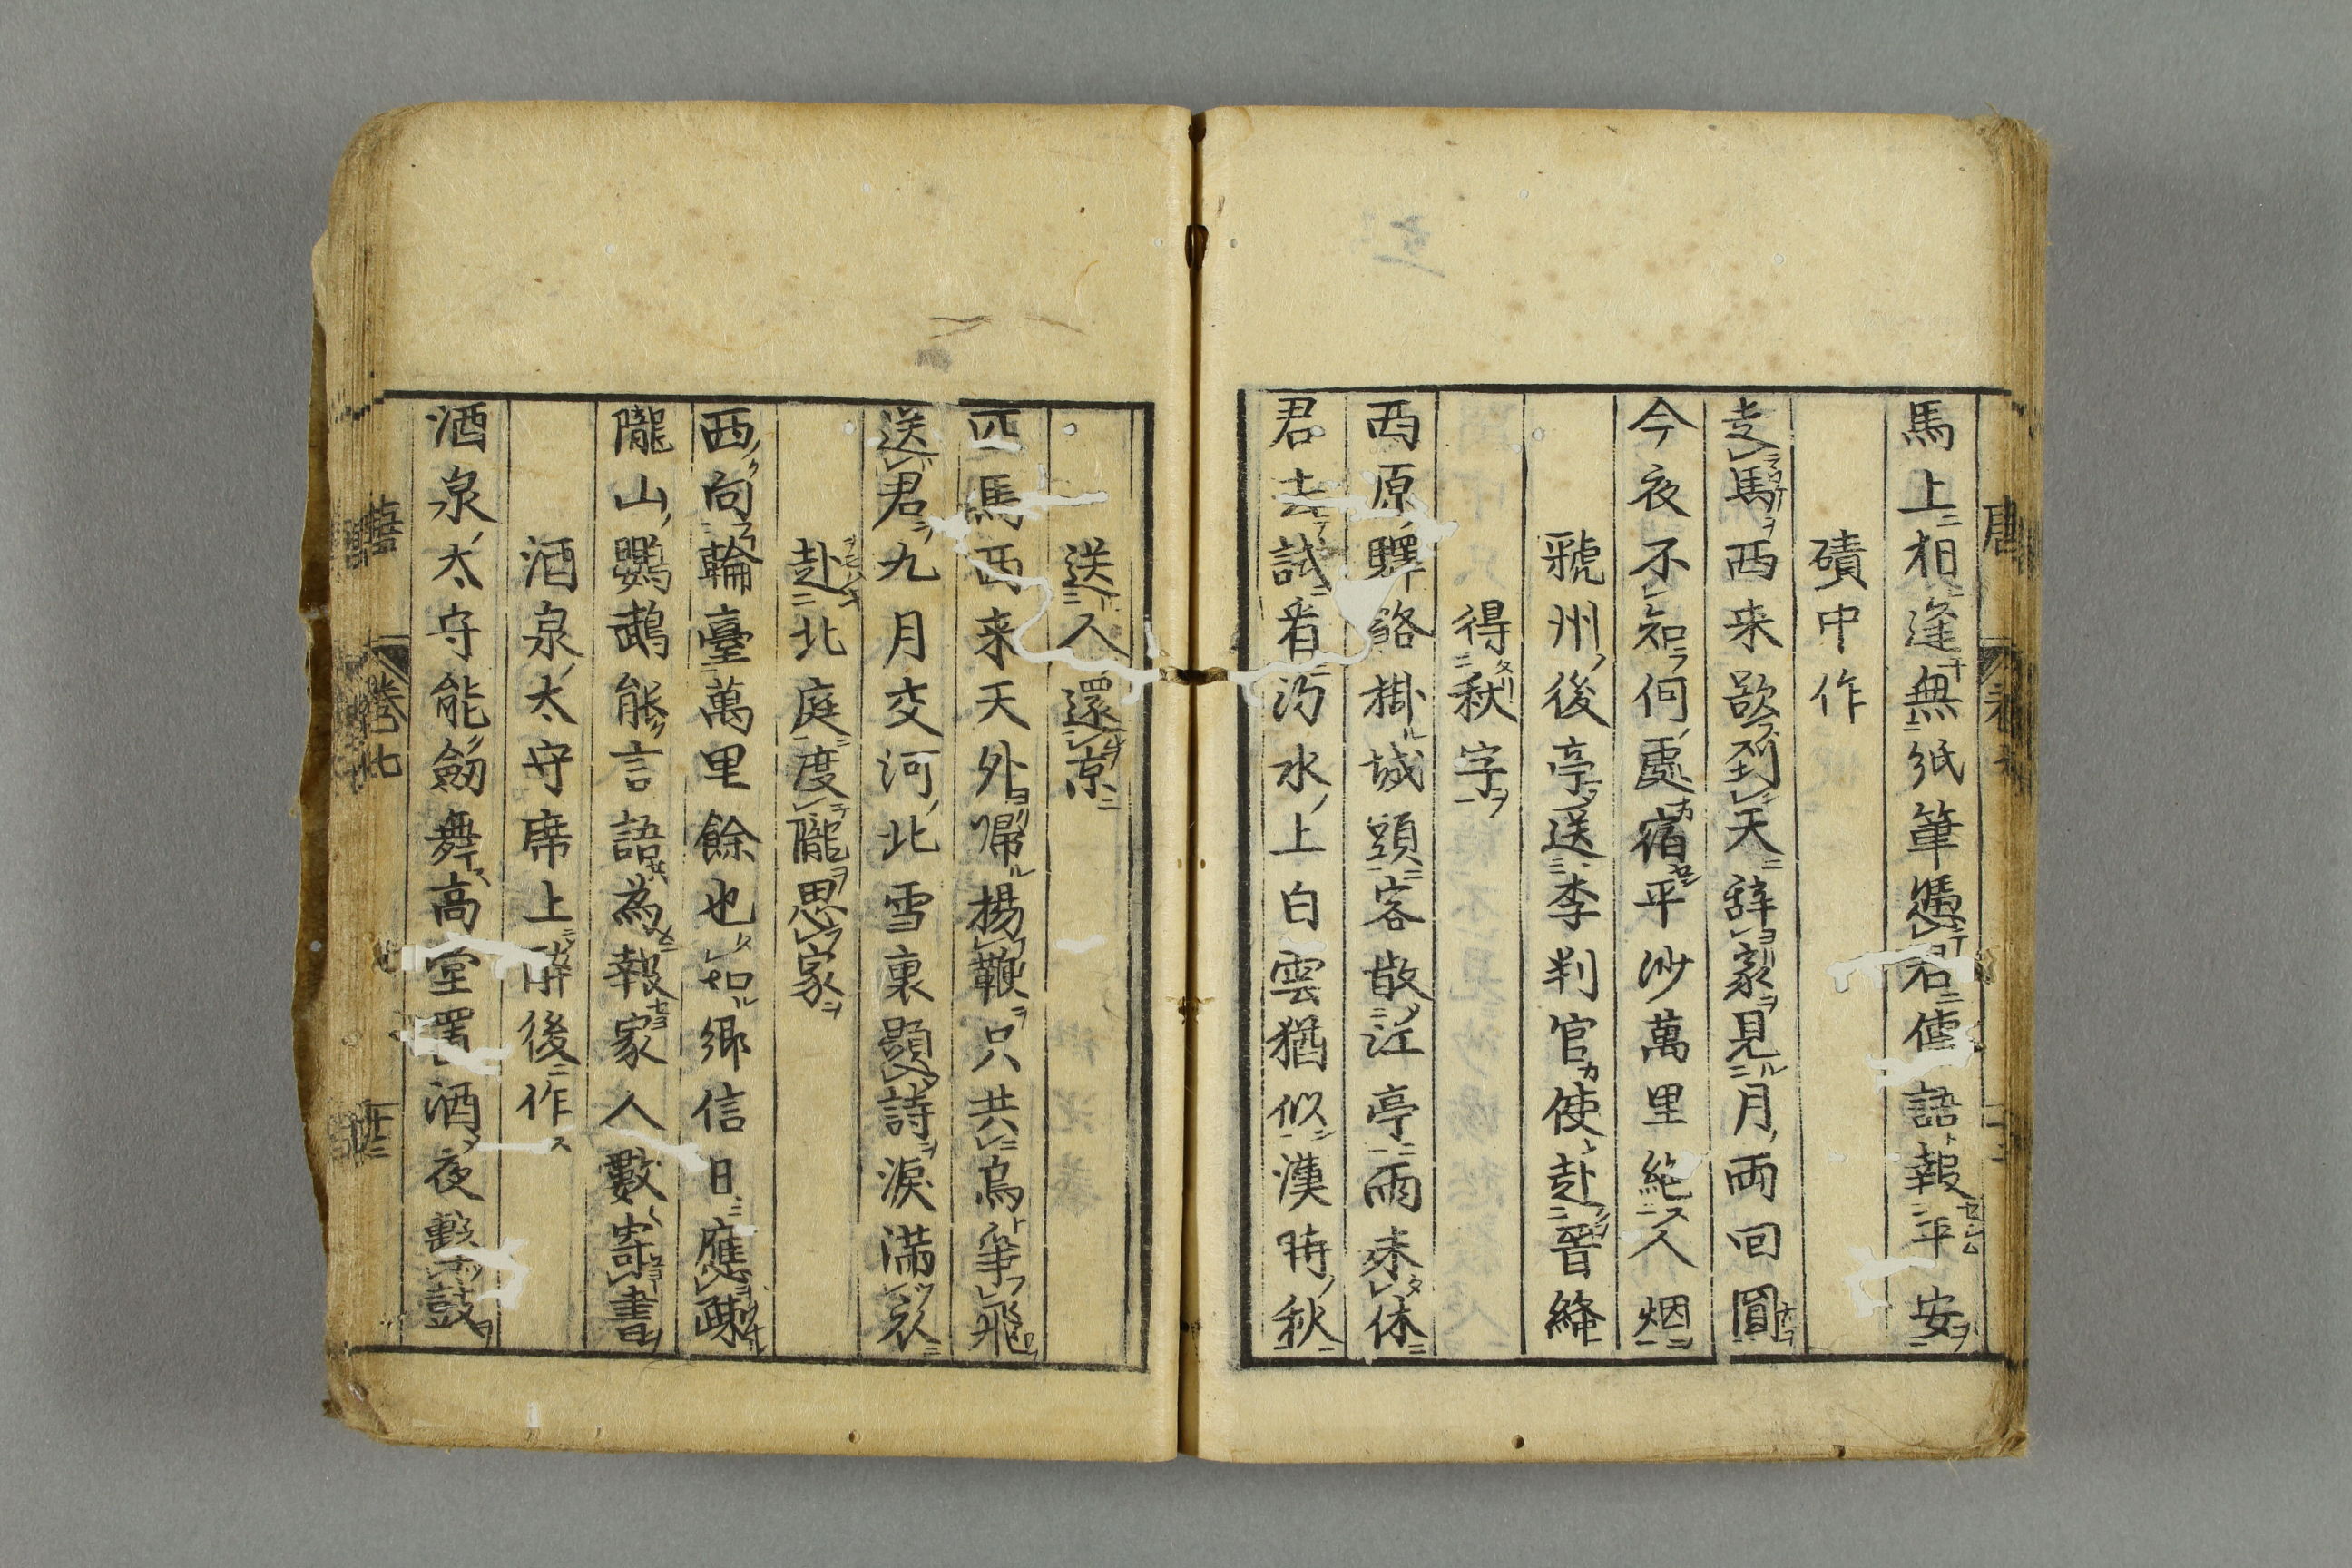 馬上相逢無紙筆憑君傳語報平安
磧中作
走馬西来欲到天辞家見月両回圓
今夜不知何處宿平沙萬里絶人烟
虢州後亭送李判官使赴晉絳
得秋字
西原驛路掛城頭客散江亭雨未休
君去試看汾水上白雲猶似漢時秋
送人還京
匹馬西来天外帰揚鞭只共鳥争飛
送君九月交河北雪裏題詩淚滿衣
赴北庭度隴思家
西向輪臺萬里餘也知郷信日應疎
隴山鸚鵡能言語為報家人數寄書
酒泉太守席上醉後作
酒泉太守能劒舞高堂置酒夜擊鼓
卷七
十二